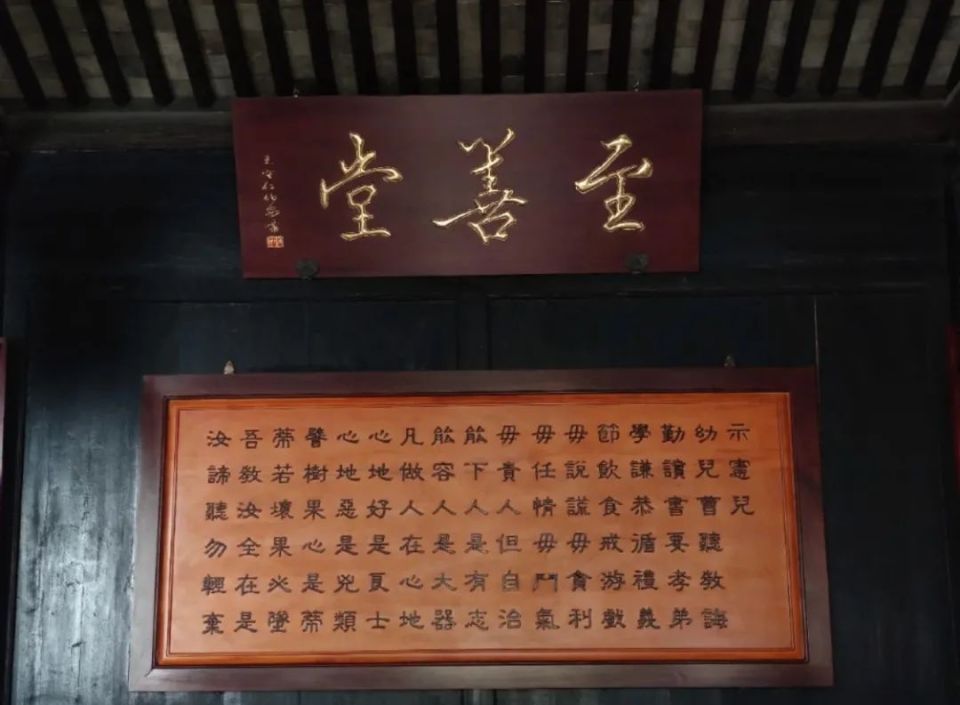 至善堂
王守仁伯安書
示憲兒
幼兒曹聽教誨
勤讀書要孝弟
學謙恭循禮義
節飲食戒游戲
毋說謊毋貪利
毋任情毋鬥氣
毋責人但自治
能下人是有志
能容人是大器
凡做人在心地
心地好是良士
心地惡是兇類
譬樹果心是蒂
蒂若壞果必墜
吾教汝全在是
汝諦聽勿輕棄